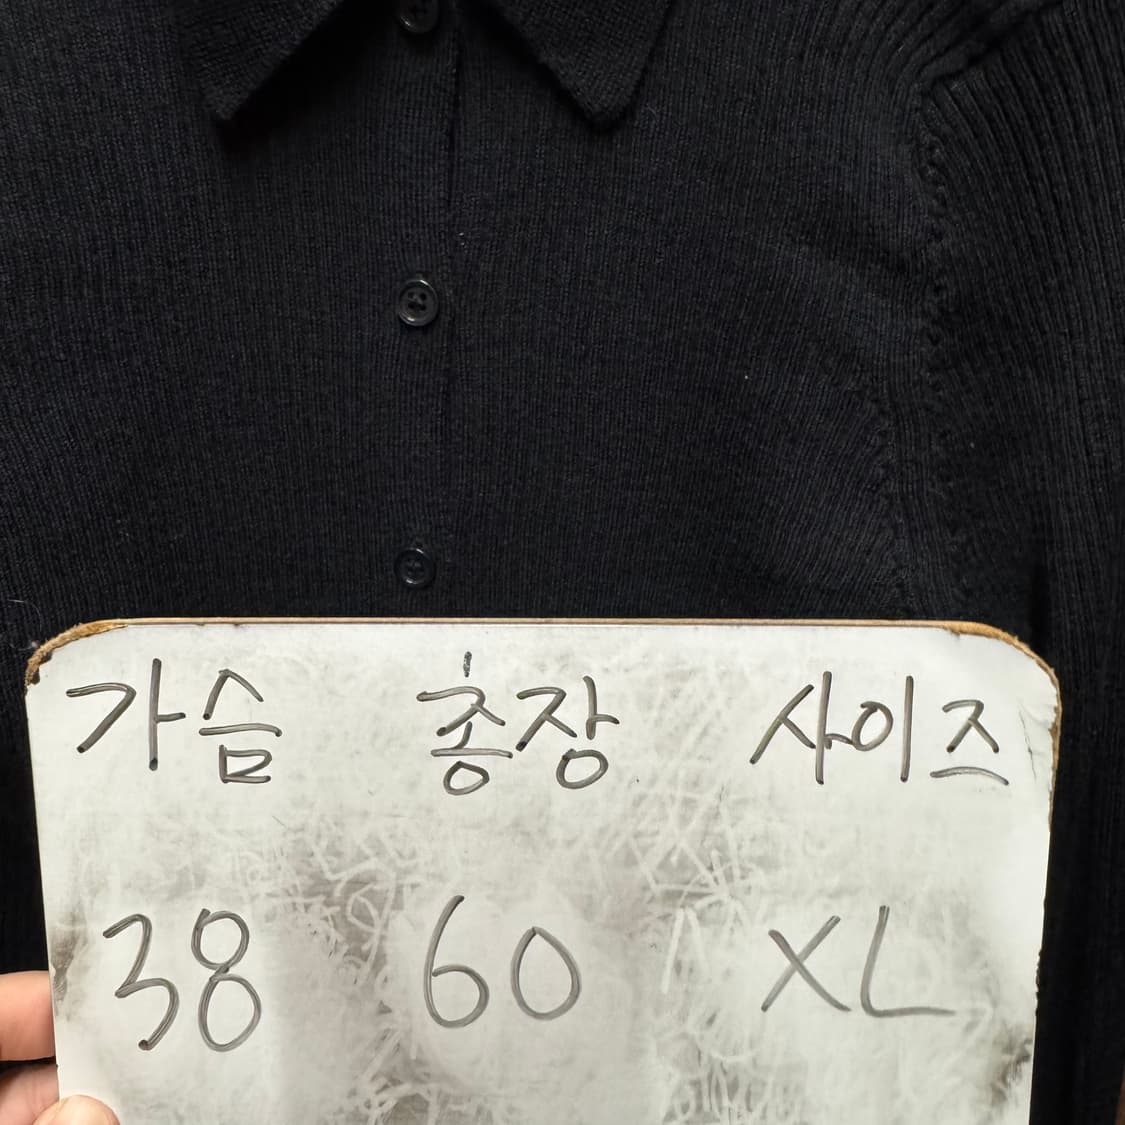 가슴 총장 사이즈
38 60 XL